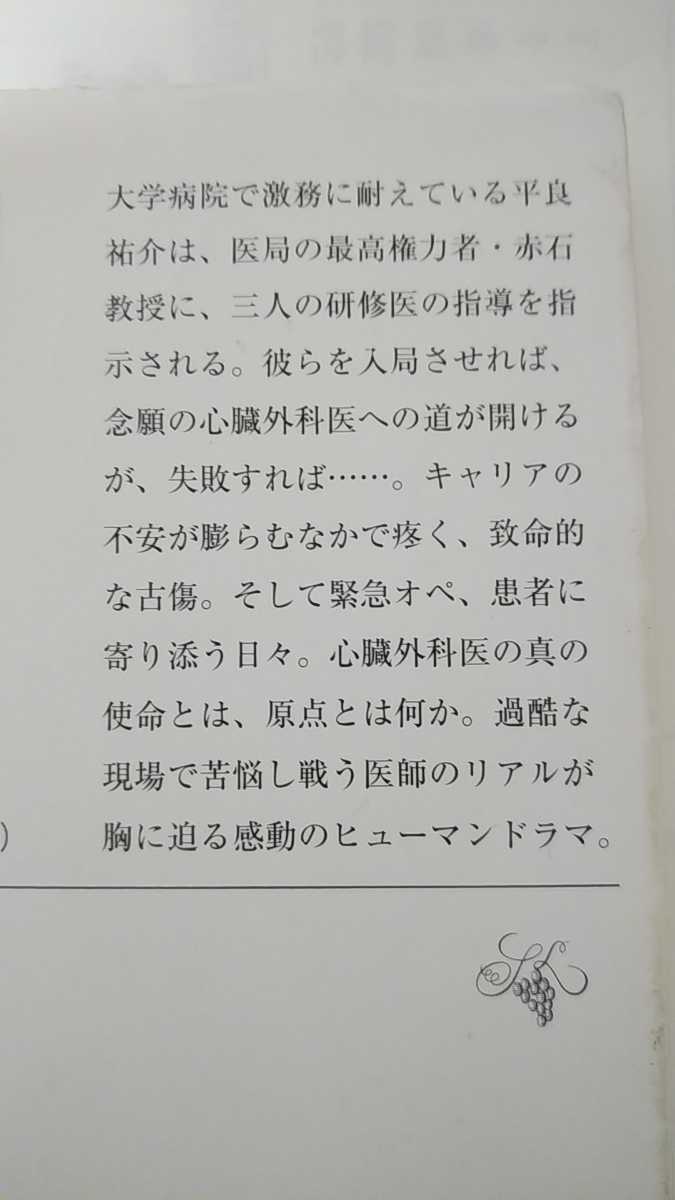 大学病院で激務に耐えている平良
祐介は、医局の最高権力者・赤石
教授に、三人の研修医の指導を指
示される。彼らを入局させれば、
念願の心臓外科医への道が開ける
が、失敗すれば……。キャリアの
不安が膨らむなかで疼く、致命的
な古傷。そして緊急オペ、患者に
寄り添う日々。心臓外科医の真の
使命とは、原点とは何か。過酷な
現場で苦悩し戦う医師のリアルが
)
胸に迫る感動のヒューマンドラマ。